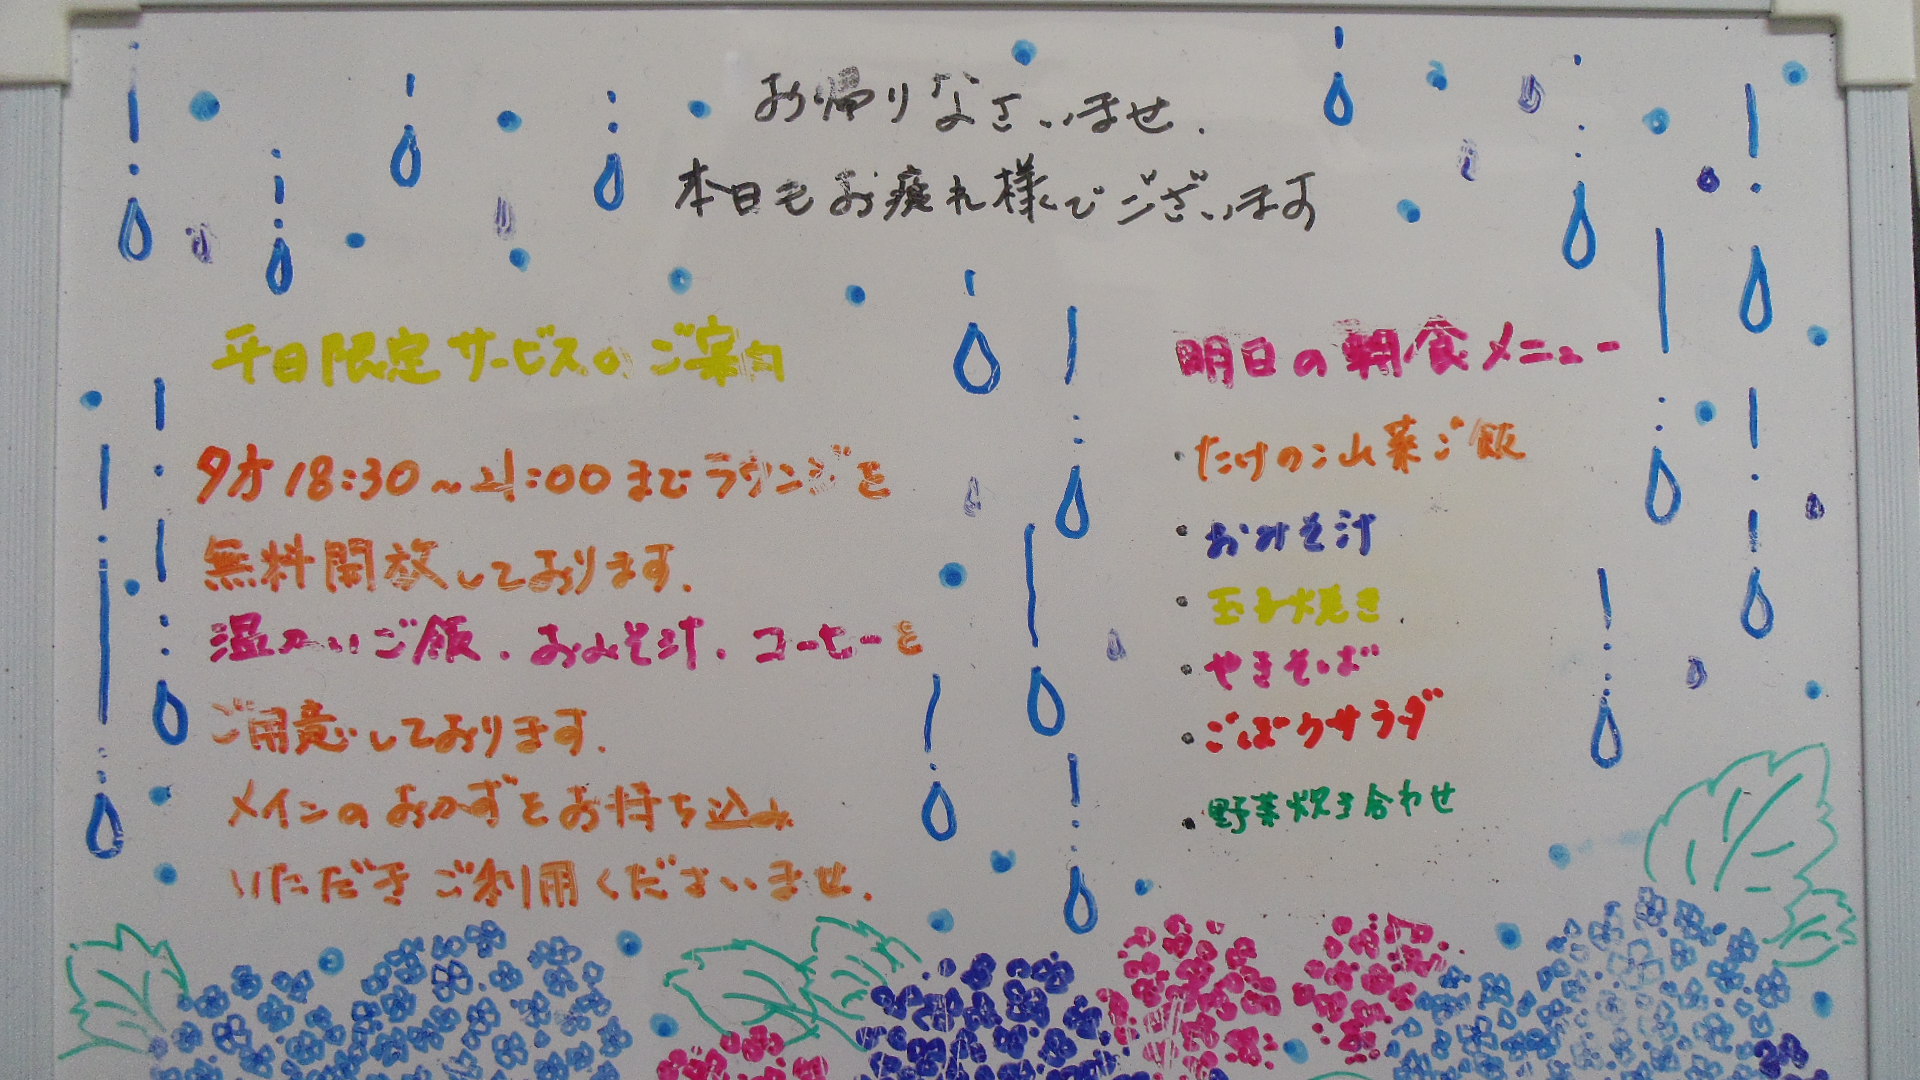 お帰りなさいませ.
本日もお疲れ様でございます
平日限定サービスのご案内
夕方18:30~21:00までラウンジを
無料開放しております.
温かいご飯.おみそ汁.コーヒーを
ご用意しております.
メインのおかずをお持ち込み
いただきご利用くださいませ.
明日の朝食メニュー
・たけのこ山菜ご飯
・おみそ汁
・玉子焼き
・やきそば
・ごぼうサラダ
・野菜炊き合わせ